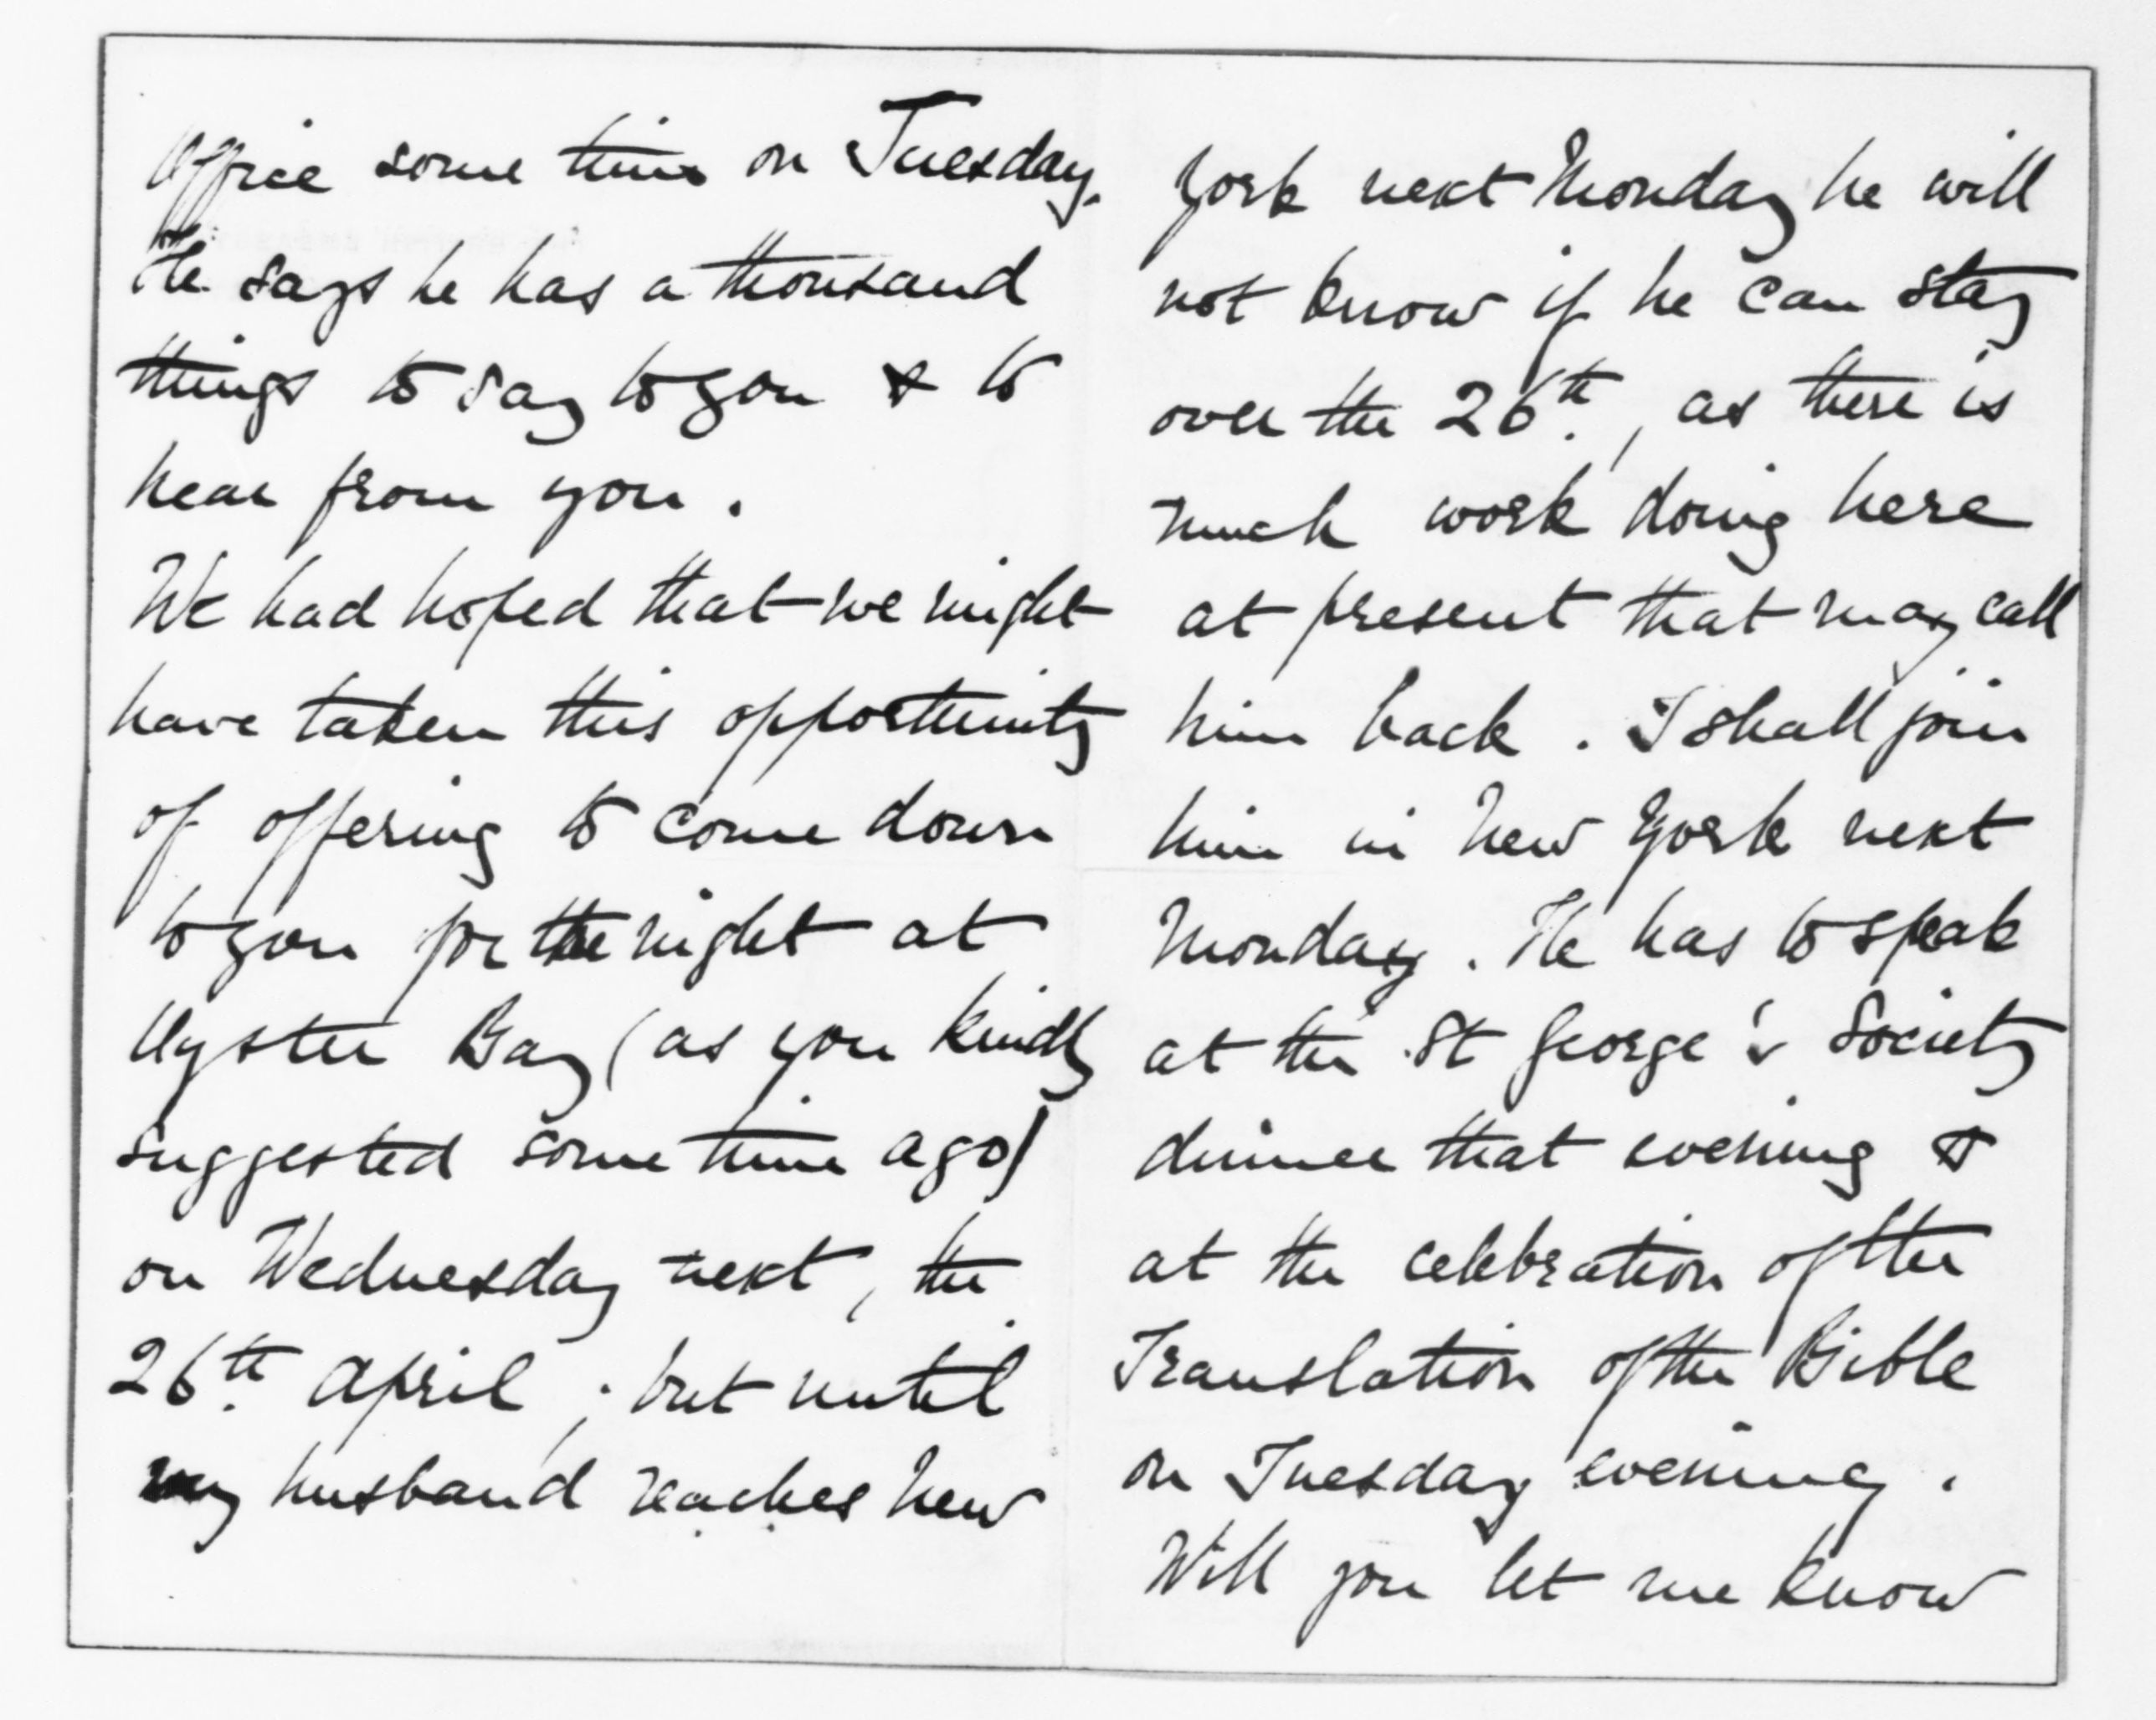 Office some time on Tuesday.
He says he has a thousand
things to say to you & to
hear from you.
We had hoped that we might
have taken this opportunity
of offering to come down
to you for the night at
Oyster Bay (as you kindly
suggested some time ago)
on Wednesday next, the
26th. April; but until
my husband reaches New
York next Monday he will
not know if he can stay
over the 26th., as there is
much work doing here
at present that may call
him back. I shall join
him in New York next
Monday. He has to speak
at the St George's Society
dinner that evening &
at the celebration of the
Translation of the Bible
on Tuesday evening.
Will you let me know